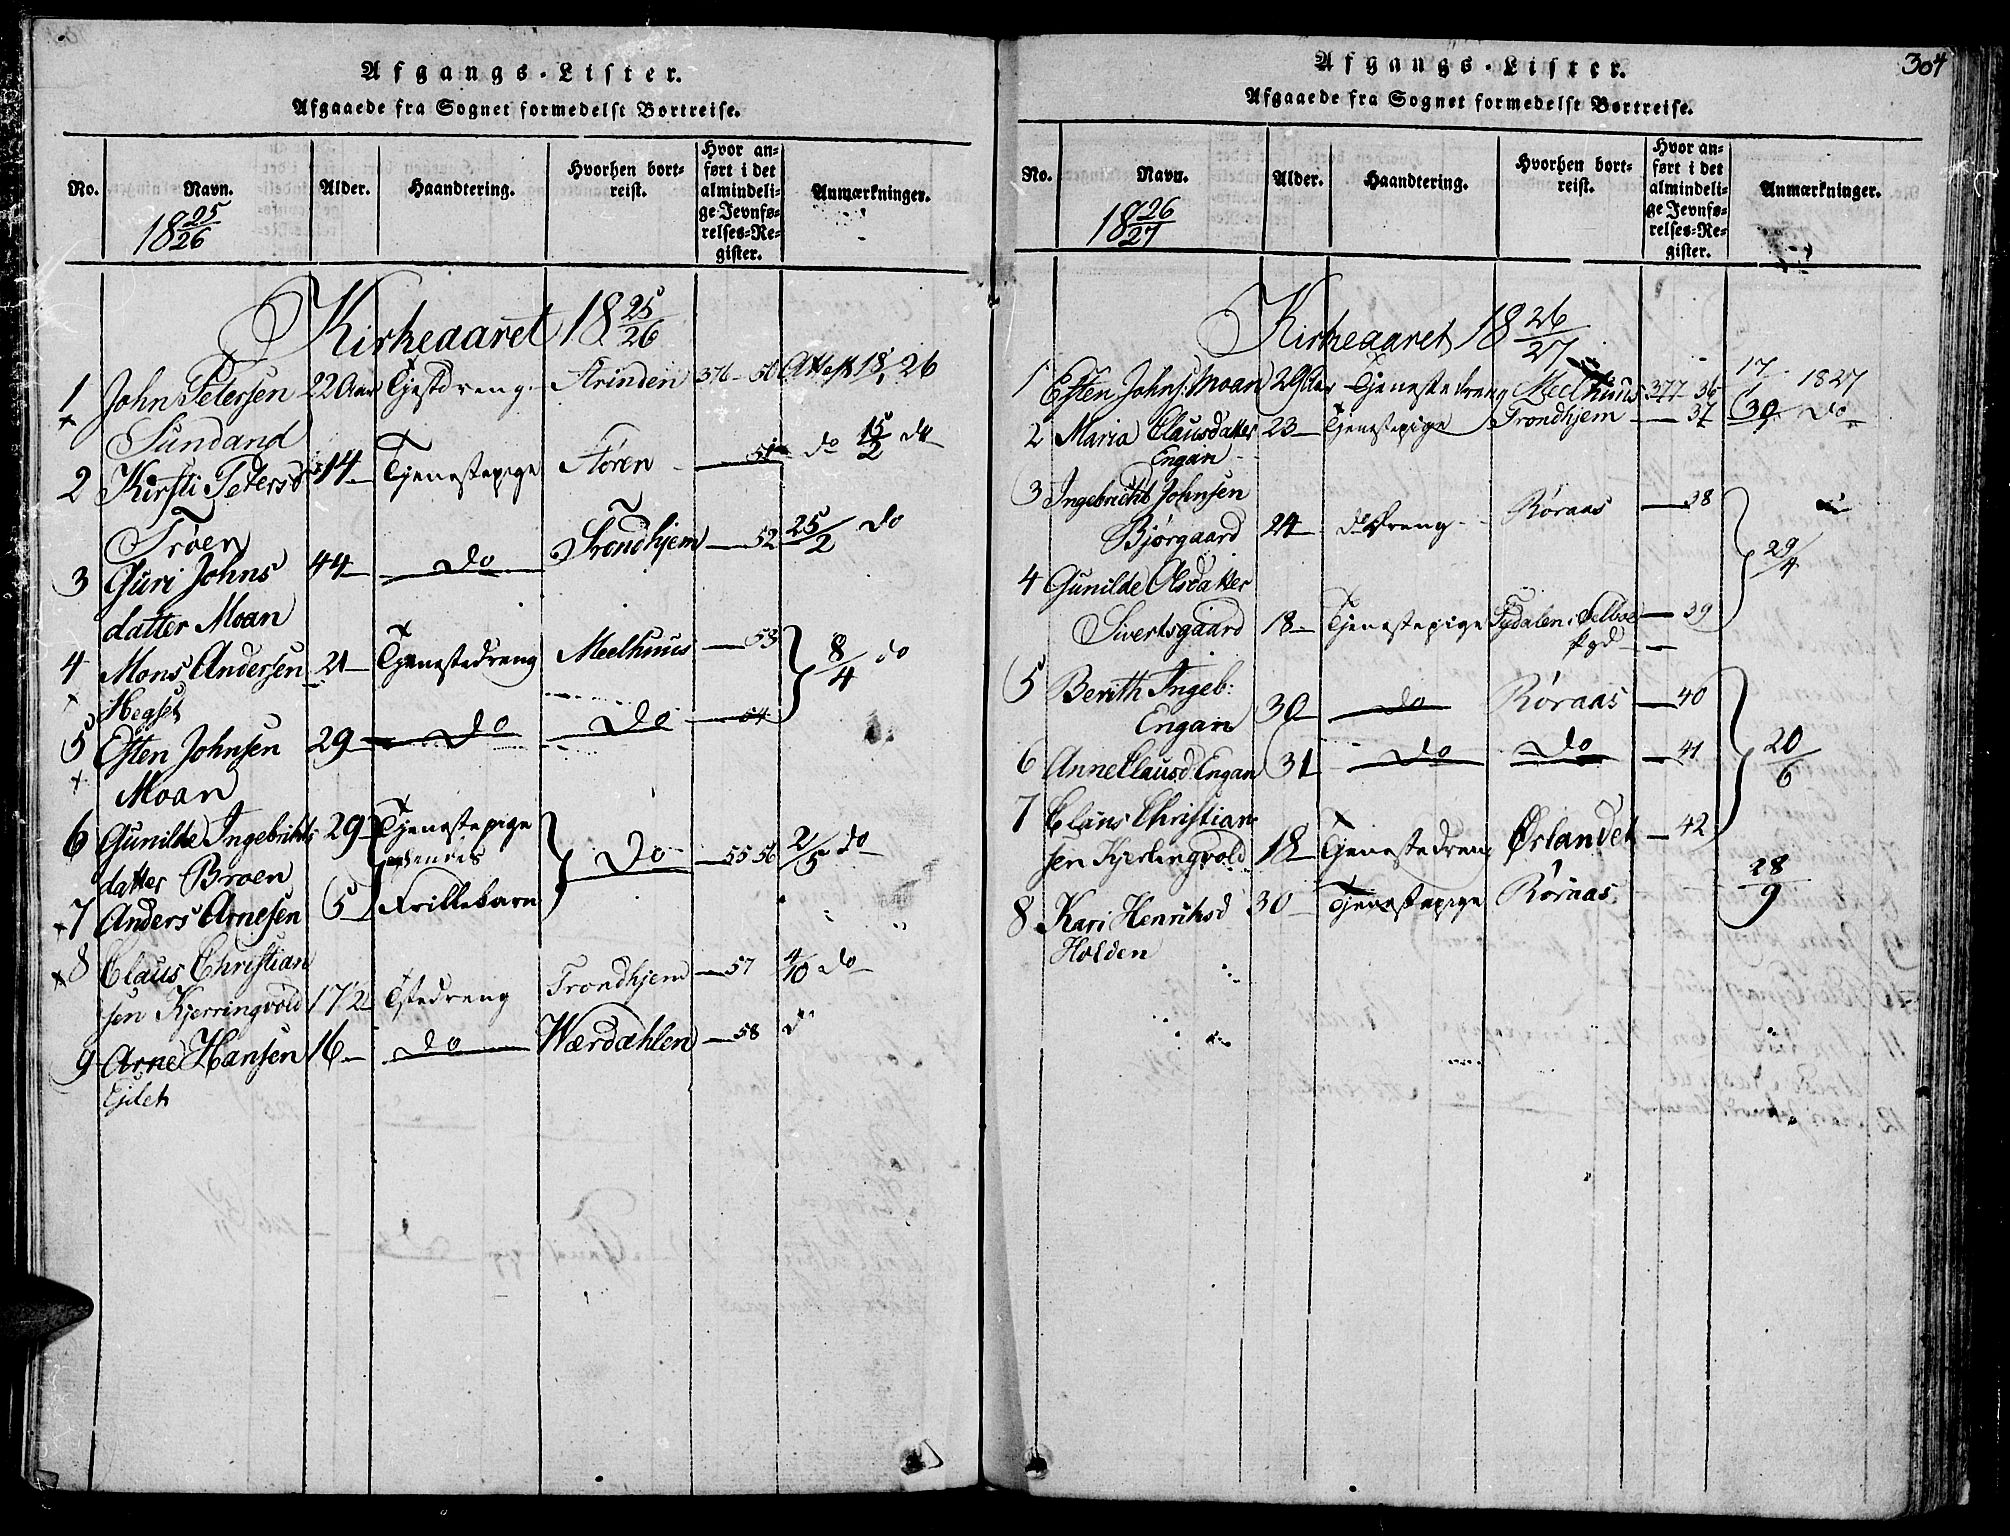 Afgangs-Lister.
Afgaaede fra Sognet formedelst Bortreise.
No. Navn. Alder. Haandtering. Hvorhen bortreist. Hvor anført i det almindelige Jevnførelses-Register. Anmærkninger.
18 25/26
Kirkeaaret 18 25/26
1 John Petersen 22 Aar Tjestdreng Strinden 376 - 50 Attest 18/1 26
Sundand
2 Kirsti Petersd 14 Tjenestepige Støren - 51 do 15/2 do
Troen
3 Guri Johns 44 do Trondhjem - 52 25/2 do
datter Moan
4 Mons Andersen 21 Tjenestedreng Meelhuus - 53 8/4 do
Hegset
5 Esten Johnsen 29 do do - 54
Moan
6 Gunilde Ingebrikts 29 Tjenestepige
datter Broen hendes do - 55 56 2/5 do
7 Anders Arnesen 5 Frillebarn
8 Claus Christian
sen Kjerringvold 17 1/2 Tstedreng Trondhjem - 57 4/10 do
9 Arne Hansen 16 do Wærdahlen - 58 do
Ejdet
304
Afgangs-Lister.
Afgaaede fra Sognet formedelst Bortreise.
No. Navn. Alder. Haandtering. Hvorhen bortreist. Hvor anført i det almindelige Jevnførelses-Register. Anmærkninger.
18 26/27
Kirkeaaret 18 26/27
1 Esten Johns: Moan 29 Aar Tjenestedreng Meelhuus 377 - 36 17/1 1827
2 Maria Clausdatter 23 Tjenestepige Trondhjem - 37 30/1 do
Engan
3 Ingebricht Johnsen
Bjørgaard 24 do dreng Røraas - 38
29/4
4 Gunilde Olsdatter
Sivertsgaard 18 Tjenestepige Tydalen i Selboe - 39
Pgd
5 Berith Ingeb:
Engan 30 do Røraas - 40
6 Anne Clausd: Engan 31 do do - 41 20/6
7 Claus Christian
sen Kjerlingvold 18 Tjenestedreng Ørlandet - 42
8 Kari Henriksd 30 Tjenestepige Røraas 28/9
Holden